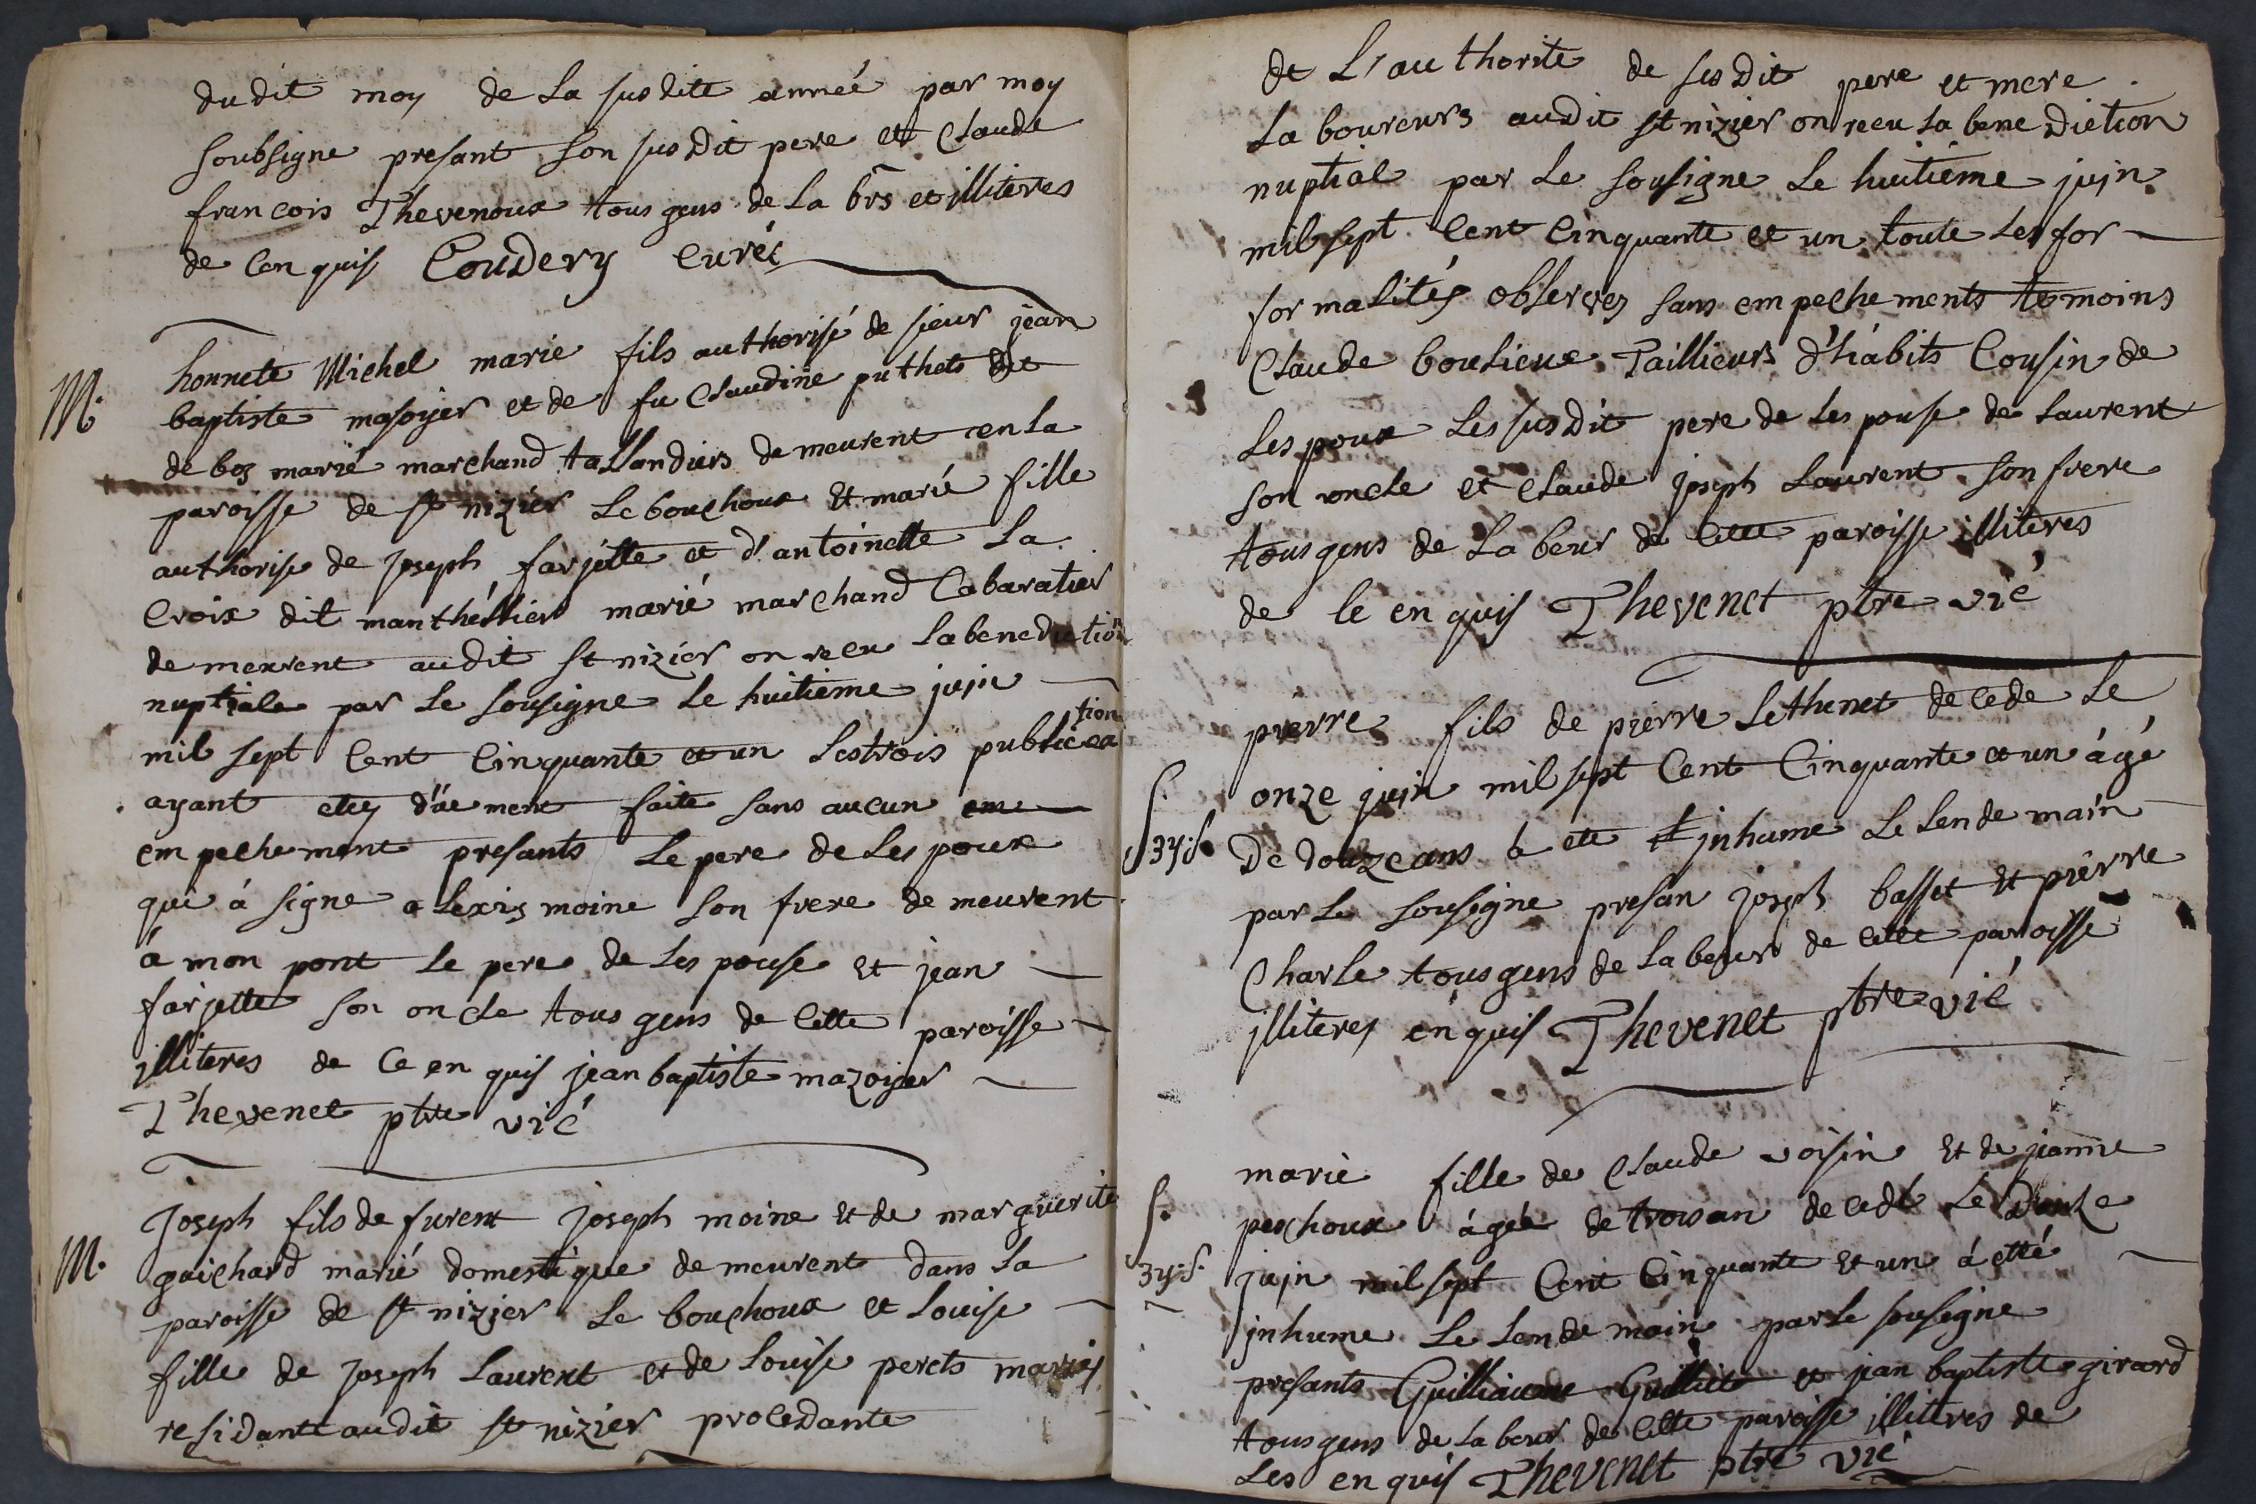 dudit moy de la susditte année par moy
soubsigne presant son susdit pere et Claude
francois Thevenoux tous gens de la brs et illiteres
de cenquis Coudery curéc
M.
honnete Michel marie fils authorisé de sieur jean
baptiste masoyer et de fu claudine puthets dit
de boz marié marchand tallandiers demeurent en la
paroisse de st nizier le bouchoux et marie fille
authorise de joseph farjette et d'antoinette la
croix dit manthéllier marié marchand cabaratier
demeurent audit st nizier on receu la benediction
nuptiale par le sousigne le huitieme juin
mil sept cent cinquante et un les trois publica
tion
ayant etéy düement faite sans aucun em
empechement presants le pere de lespoux
qui á signe alexis moine son frere demeurent
á mon pont le pere de lespouse et jean
farjette son oncle tous gens de cette paroisse
illiteres de ce enquis jean baptiste mazoyer
Thevenet ptre vié
M.
joseph fils de furent joseph moine et de marguerite
guichard marié domestique demeurent dans la
paroisse de st nizier le bouchoux et louise
fille de joseph laurent et de louise perets mariéj
residante audit st nizier procedante
de l'authorite de ses dit pere et mere
laboureurs audit st nizier on receu la benediction
nuptial par le sousigne le huitieme juin
mil sept cent cinquante et un toute les for
formalités observez sans empechements temoins
Claude boulieux Taillieurs d'hábits cousin de
lespoux les susdit pere de lespouse de laurent
son oncle et claude joseph laurent son frere
tous gens de labeur de cette paroisse illiteres
de le enquis Thevenet ptre vié
pierre fils de pierre lethenet decede le
onze juin mil sept cent cinquante et un ágé
S.
3y:s
De douze ans a ete inhume le lendemain
par le sousigne presan joseph basset et pierre
Charle tous gens de labeur de cette paroisse
illiteres enquis Thevenet ptre vié
marie fille de claude voisin et de jeanne
S.
pochoux ágée de trois an decede le douze
3y:s
juin mil sept cent cinquante et un á etté
inhume le lendemain par le sousigne
presants Guilliaume Guillet et jean baptiste girard
tous gens de labeur de cette paroisse illiteres de
les enquis Thevenet ptre vié